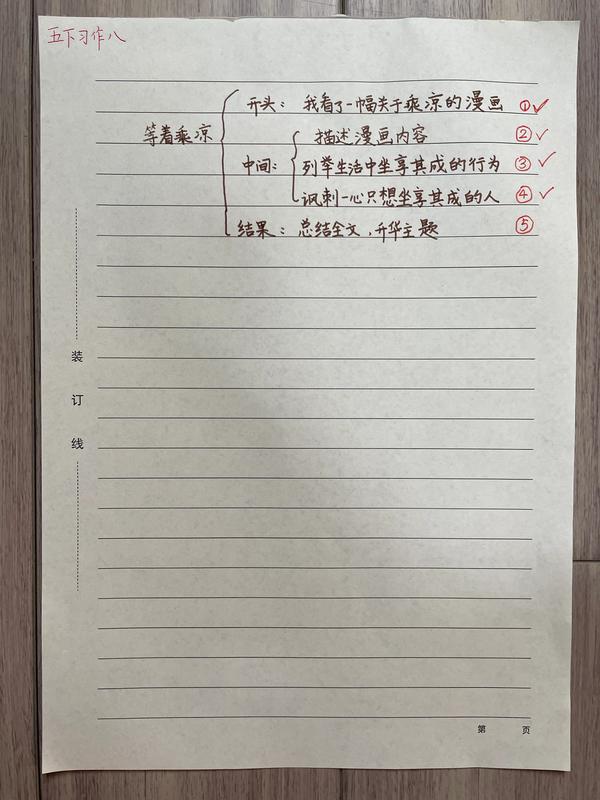 五下习作八
开头：我看了一幅关于乘凉的漫画 ①✓
描述漫画内容 ②✓
等着乘凉
中间：列举生活中坐享其成的行为 ③✓
讽刺一心只想坐享其成的人 ④✓
结果：总结全文，升华主题 ⑤
装
订
线
第 页